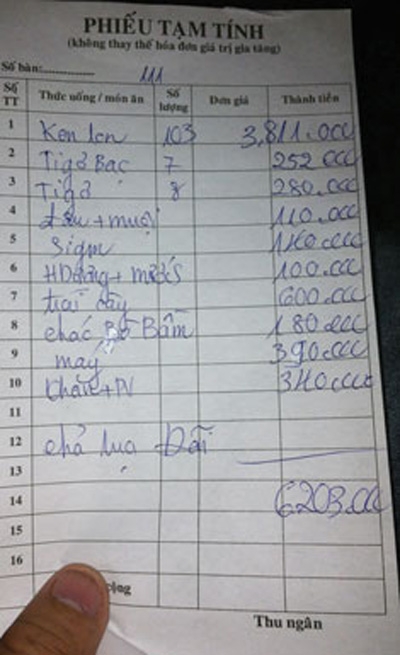 PHIẾU TẠM TÍNH
(không thay thế hóa đơn giá trị gia tăng)
Số bàn:............... 111
Số TT Thức uống / món ăn Số lượng Đơn giá Thành tiền
1 Ken lon 103 3,811.000
2 Tigơ Bạc 7 252 000
3 Tigơ 8 280.000
4 đậu + muối 110.000
5 Sigm 140.000
6 100.000
7 trái cây 600.000
8 Bò Bằm 180.000
9 may 390.000
10 Khăn + PV 340.000
11
12 chả lụa Dãi
13
14 6203.00
15
16
cộng
Thu ngân